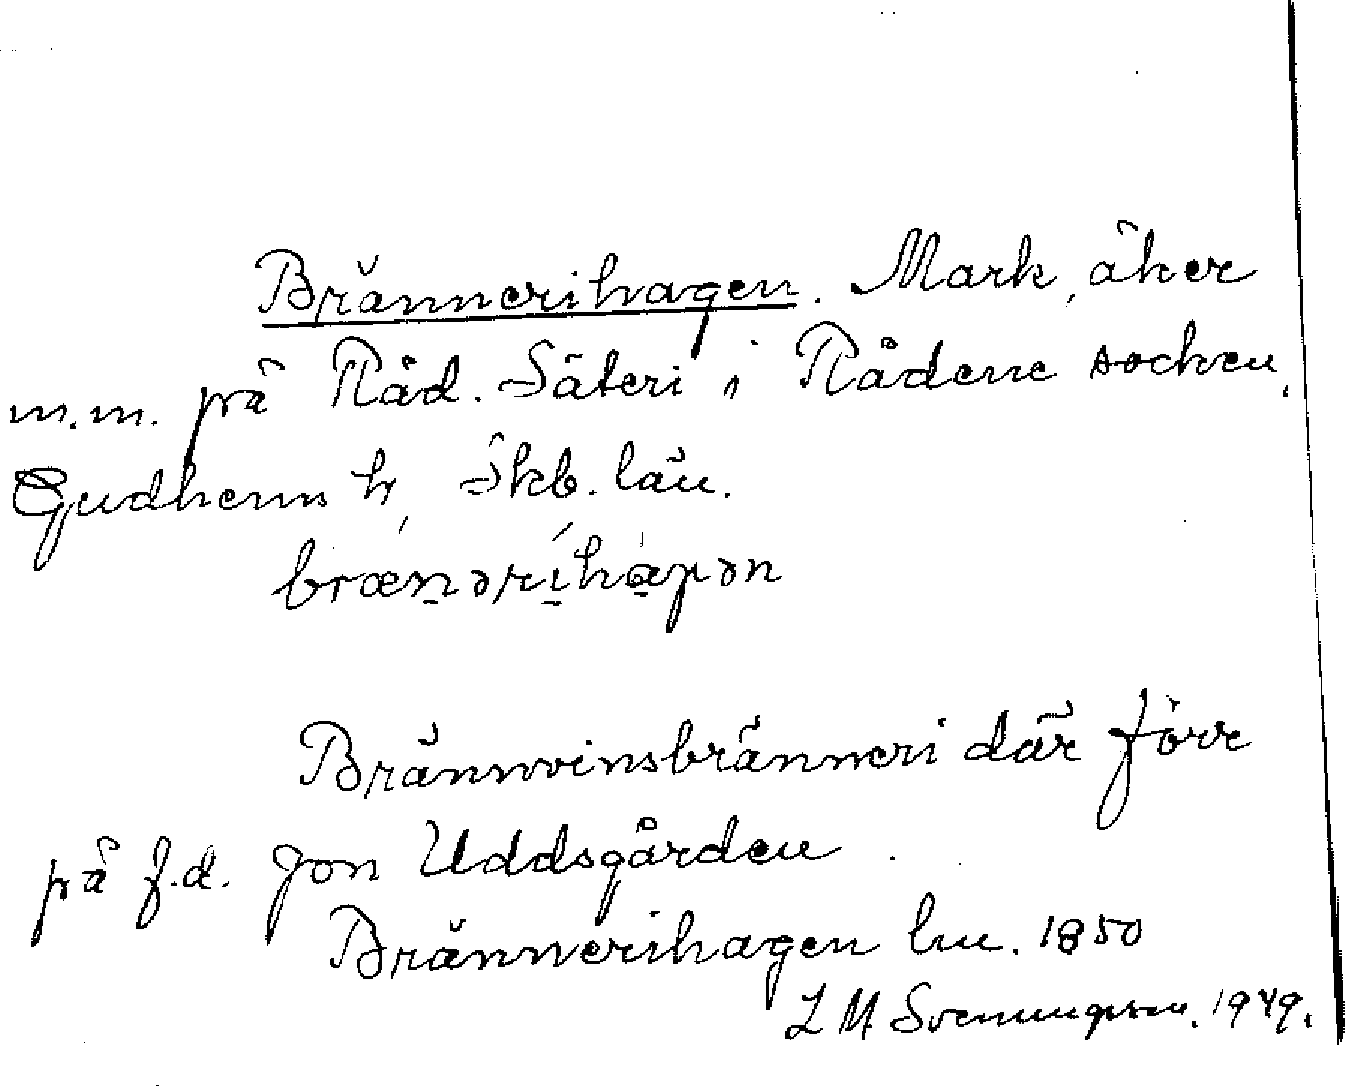 Brännerihagen. Mark, åker
m.m. på Råd. Säteri i Rådene socken,
Gudhems h, Skb. län.
brænərihagən

Brännvinsbränneri där förr
på f.d. Jon Uddsgården.
Brännerihagen lm. 1850
L M Svenungsson. 1949.